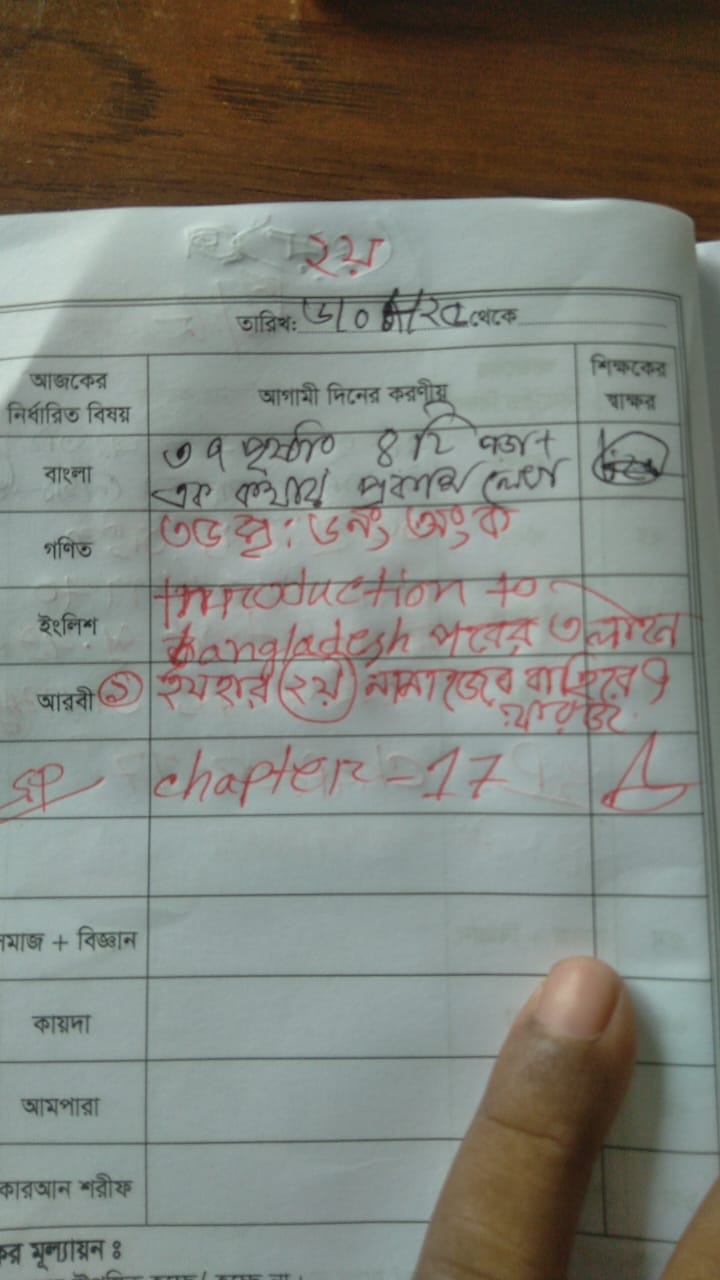 ২য়
তারিখ: থেকে
আজকের নির্ধারিত বিষয় আগামী দিনের করণীয় শিক্ষকের স্বাক্ষর
বাংলা ৩৭ পৃষ্ঠার ৪ টি পড়া +
এক কথায় প্রকাশ লেখা
গণিত ৩৮ পৃ: ৬নং অংক
ইংলিশ Introduction to
Bangladesh পরের ৩ লাইন
আরবী ১) ইযহার (২য়) নামাজের বাহিরে ও
chapter - 17
সমাজ + বিজ্ঞান
কায়দা
আমপারা
কোরআন শরীফ
মূল্যায়ন ঃ